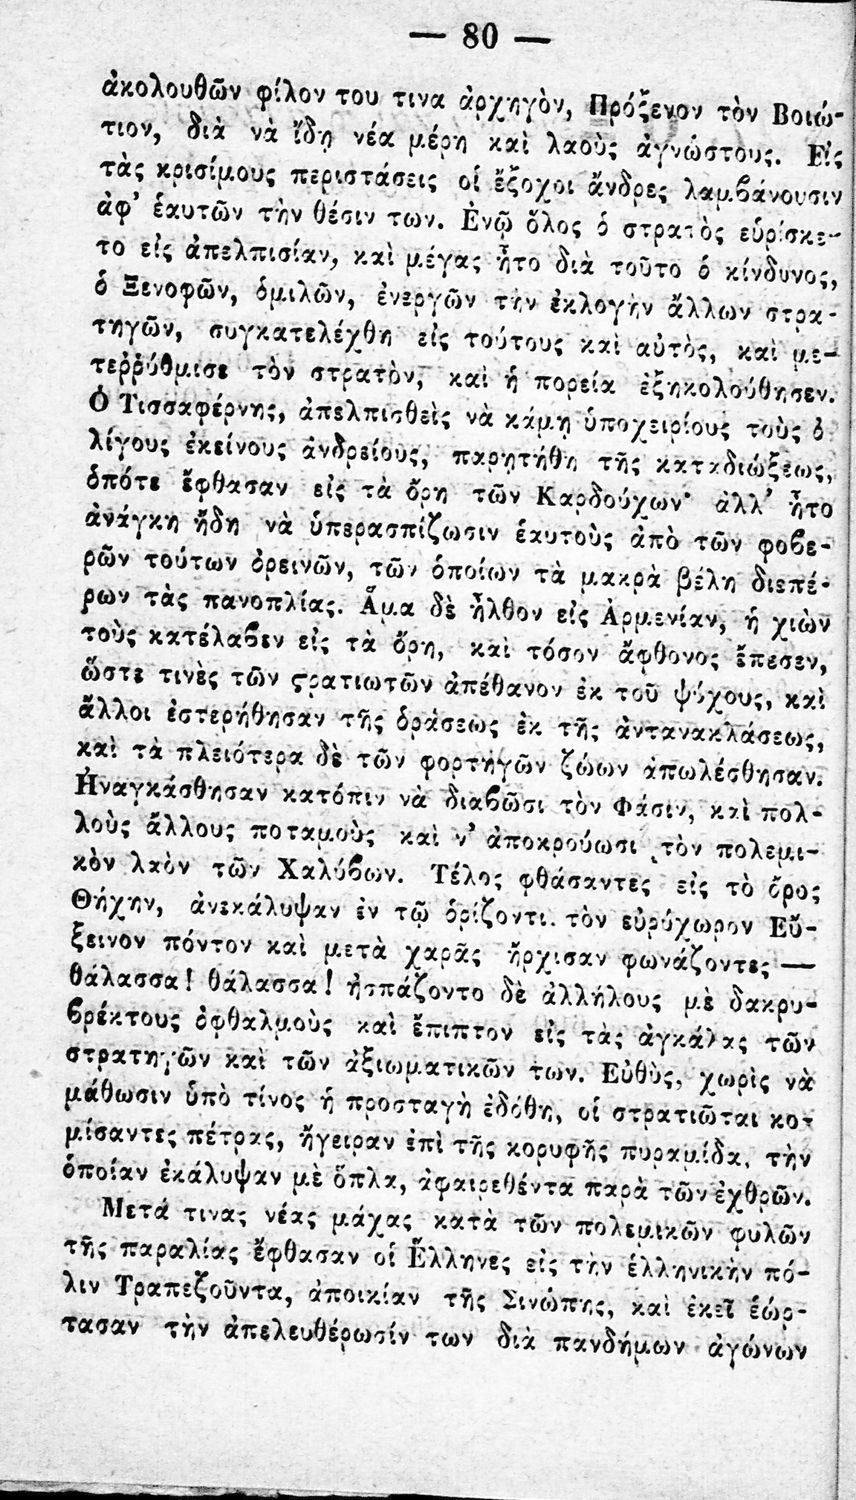 — 80 —
ἀκολουθῶν φίλον του τινα ἀρχηγὸν, Πρόξενον τὸν Βοιώ-
τιον, διὰ νὰ ἴδῃ νέα μέρη καὶ λαοὺς ἀγνώστους. Εἰς
τὰς κρισίμους περιστάσεις οἱ ἔξοχοι ἄνδρες λαμϐάνουσιν
ἀφ' ἑαυτῶν τὴν θέσιν των. Ἐνῷ ὅλος ὁ στρατὸς εὑρίσκε-
το εἰς ἀπελπισίαν, καὶ μέγας ἦτο διὰ τοῦτο ὁ κίνδυνος,
ὁ Ξενοφῶν, ὁμιλῶν, ἐνεργῶν τὴν ἐκλογὴν ἄλλων στρα-
τηγῶν, συγκατελέχθη εἰς τούτους καὶ αὐτὸς, καὶ με-
τεῤῥύθμισε τὸν στρατὸν, καὶ ἡ πορεία ἐξηκολούθησεν.
Ὁ Τισσαφέρνης, ἀπελπισθεὶς νὰ κάμῃ ὑποχειρίους τοὺς ὀ
λίγους ἐκείνους ἀνδρείους, παρῃτήθη τῆς καταδιώξεως,
ὁπότε ἔφθασαν εἰς τὰ ὄρη τῶν Καρδούχων· ἀλλ' ἦτο
ἀνάγκη ἤδη νὰ ὑπερασπίζωσιν ἑαυτοὺς ἀπὸ τῶν φοϐε-
ρῶν τούτων ὀρεινῶν, τῶν ὁποίων τὰ μακρὰ βέλη διεπέ-
ρων τὰς πανοπλίας. Ἅμα δὲ ἦλθον εἰς Ἀρμενίαν, ἡ χιὼν
τοὺς κατέλαϐεν εἰς τὰ ὄρη, καὶ τόσον ἄφθονος ἔπεσεν,
ὥστε τινὲς τῶν ϛρατιωτῶν ἀπέθανον ἐκ τοῦ ψύχους, καὶ
ἄλλοι ἐστερήθησαν τῆς ὁράσεως ἐκ τῆς ἀντανακλάσεως,
καὶ τὰ πλειότερα δὲ τῶν φορτηγῶν ζώων ἀπωλέσθησαν.
Ἠναγκάσθησαν κατόπιν νὰ διαϐῶσι τὸν Φάσιν, καὶ πολ-
λοὺς ἄλλους ποταμοὺς καὶ ν' ἀποκρούωσι τὸν πολεμι-
κὸν λαὸν τῶν Χαλύϐων. Τέλος φθάσαντες εἰς τὸ ὄρος
Θήχην, ἀνεκάλυψαν ἐν τῷ ὁρίζοντι τὸν εὐρύχωρον Εὔ-
ξεινον πόντον καὶ μετὰ χαρᾶς ἤρχισαν φωνάζοντες —
θάλασσα! θάλασσα! ἠσπάζοντο δὲ ἀλλήλους μὲ δακρυ-
ϐρέκτους ὀφθαλμοὺς καὶ ἔπιπτον εἰς τὰς ἀγκάλας τῶν
στρατηγῶν καὶ τῶν ἀξιωματικῶν των. Εὐθὺς, χωρὶς νὰ
μάθωσιν ὑπὸ τίνος ἡ προσταγὴ ἐδόθη, οἱ στρατιῶται κο-
μίσαντες πέτρας, ἤγειραν ἐπὶ τῆς κορυφῆς πυραμίδα, τὴν
ὁποίαν ἐκάλυψαν μὲ ὅπλα, ἀφαιρεθέντα παρὰ τῶν ἐχθρῶν.
Μετά τινας νέας μάχας κατὰ τῶν πολεμικῶν φυλῶν
τῆς παραλίας ἔφθασαν οἱ Ἕλληνες εἰς τὴν ἑλληνικὴν πό-
λιν Τραπεζοῦντα, ἀποικίαν τῆς Σινώπης, καὶ ἐκεῖ ἑώρ-
τασαν τὴν ἀπελευθέρωσίν των διὰ πανδήμων ἀγώνων